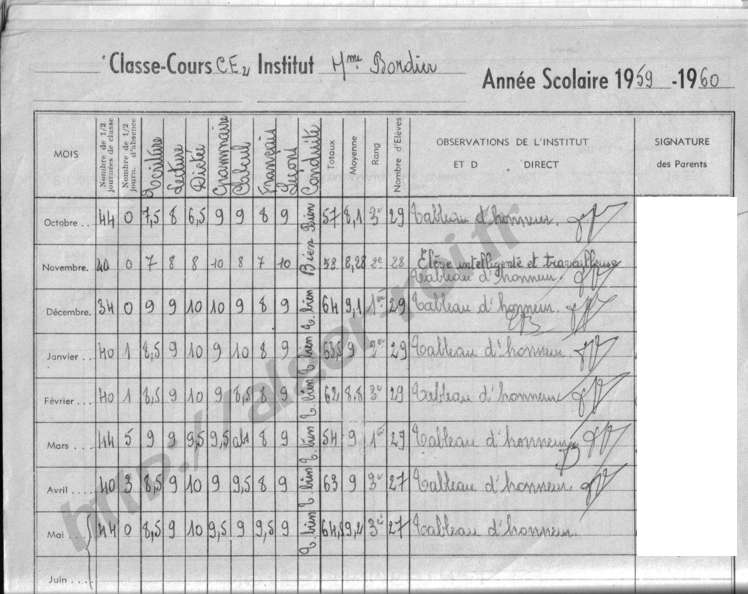 Classe-Cours CE2 Institut Mme Bordier
Année Scolaire 1959-1960
MOIS Nombre de 1/2 journées de classe Nombre de 1/2 journ. d'absence Ecriture Lecture Dictée Grammaire Calcul Français Leçons Conduite Totaux Moyenne Rang Nombre d'Elèves OBSERVATIONS DE L'INSTITUT ET D DIRECT SIGNATURE des Parents
Octobre .. 44 0 7,5 8 6,5 9 9 8 9 Bien 57 8,1 3e 29 Tableau d'honneur.
Novembre. 40 0 7 8 8 10 8 7 10 Bien 58 8,28 2e 28 Elève intelligente et travailleuse
Tableau d'honneur
Décembre. 34 0 9 9 10 10 9 8 9 T. bien 64 9,1 1er 29 Tableau d'honneur.
Janvier ... 40 1 8,5 9 10 9 10 8 9 T. bien 63,5 9 29 Tableau d'honneur.
Février ... 40 1 8,5 9 10 9 8,5 8 9 T. bien 62 8.8 3e 29 Tableau d'honneur
Mars .... 44 5 9 9 9,5 9,5 abs 8 9 T. bien 54 9 1er 29 Tableau d'honneur
Avril .... 40 3 8,5 9 10 9 9,5 8 9 T. bien 63 9 3e 27 Tableau d'honneur.
Mai .... 44 0 8,5 9 10 9,5 9 9,5 9 T. bien 64,5 9,2 3e 27 Tableau d'honneur.
Juin ....
http://alger-roi.fr